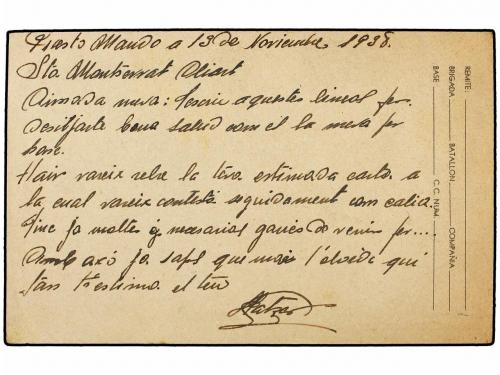 Puesto Mando a 13 de Noviembre 1938.
Sta Montserrat
Aimada meva: Serviu aquestes lineas per
desitjarte bona salud com es la meva per
hare.
Hair vareix rebre la teva estimada carta a
la cual vareix contestá seguidament com calia.
Tinc ja moltes y necesarias ganes de venir per....
Amb axó ja saps que mai t'olvida qui
tan t'estima el teu
REMITE:
BRIGADA BATALLON COMPAÑIA
BASE C. C. NUM.